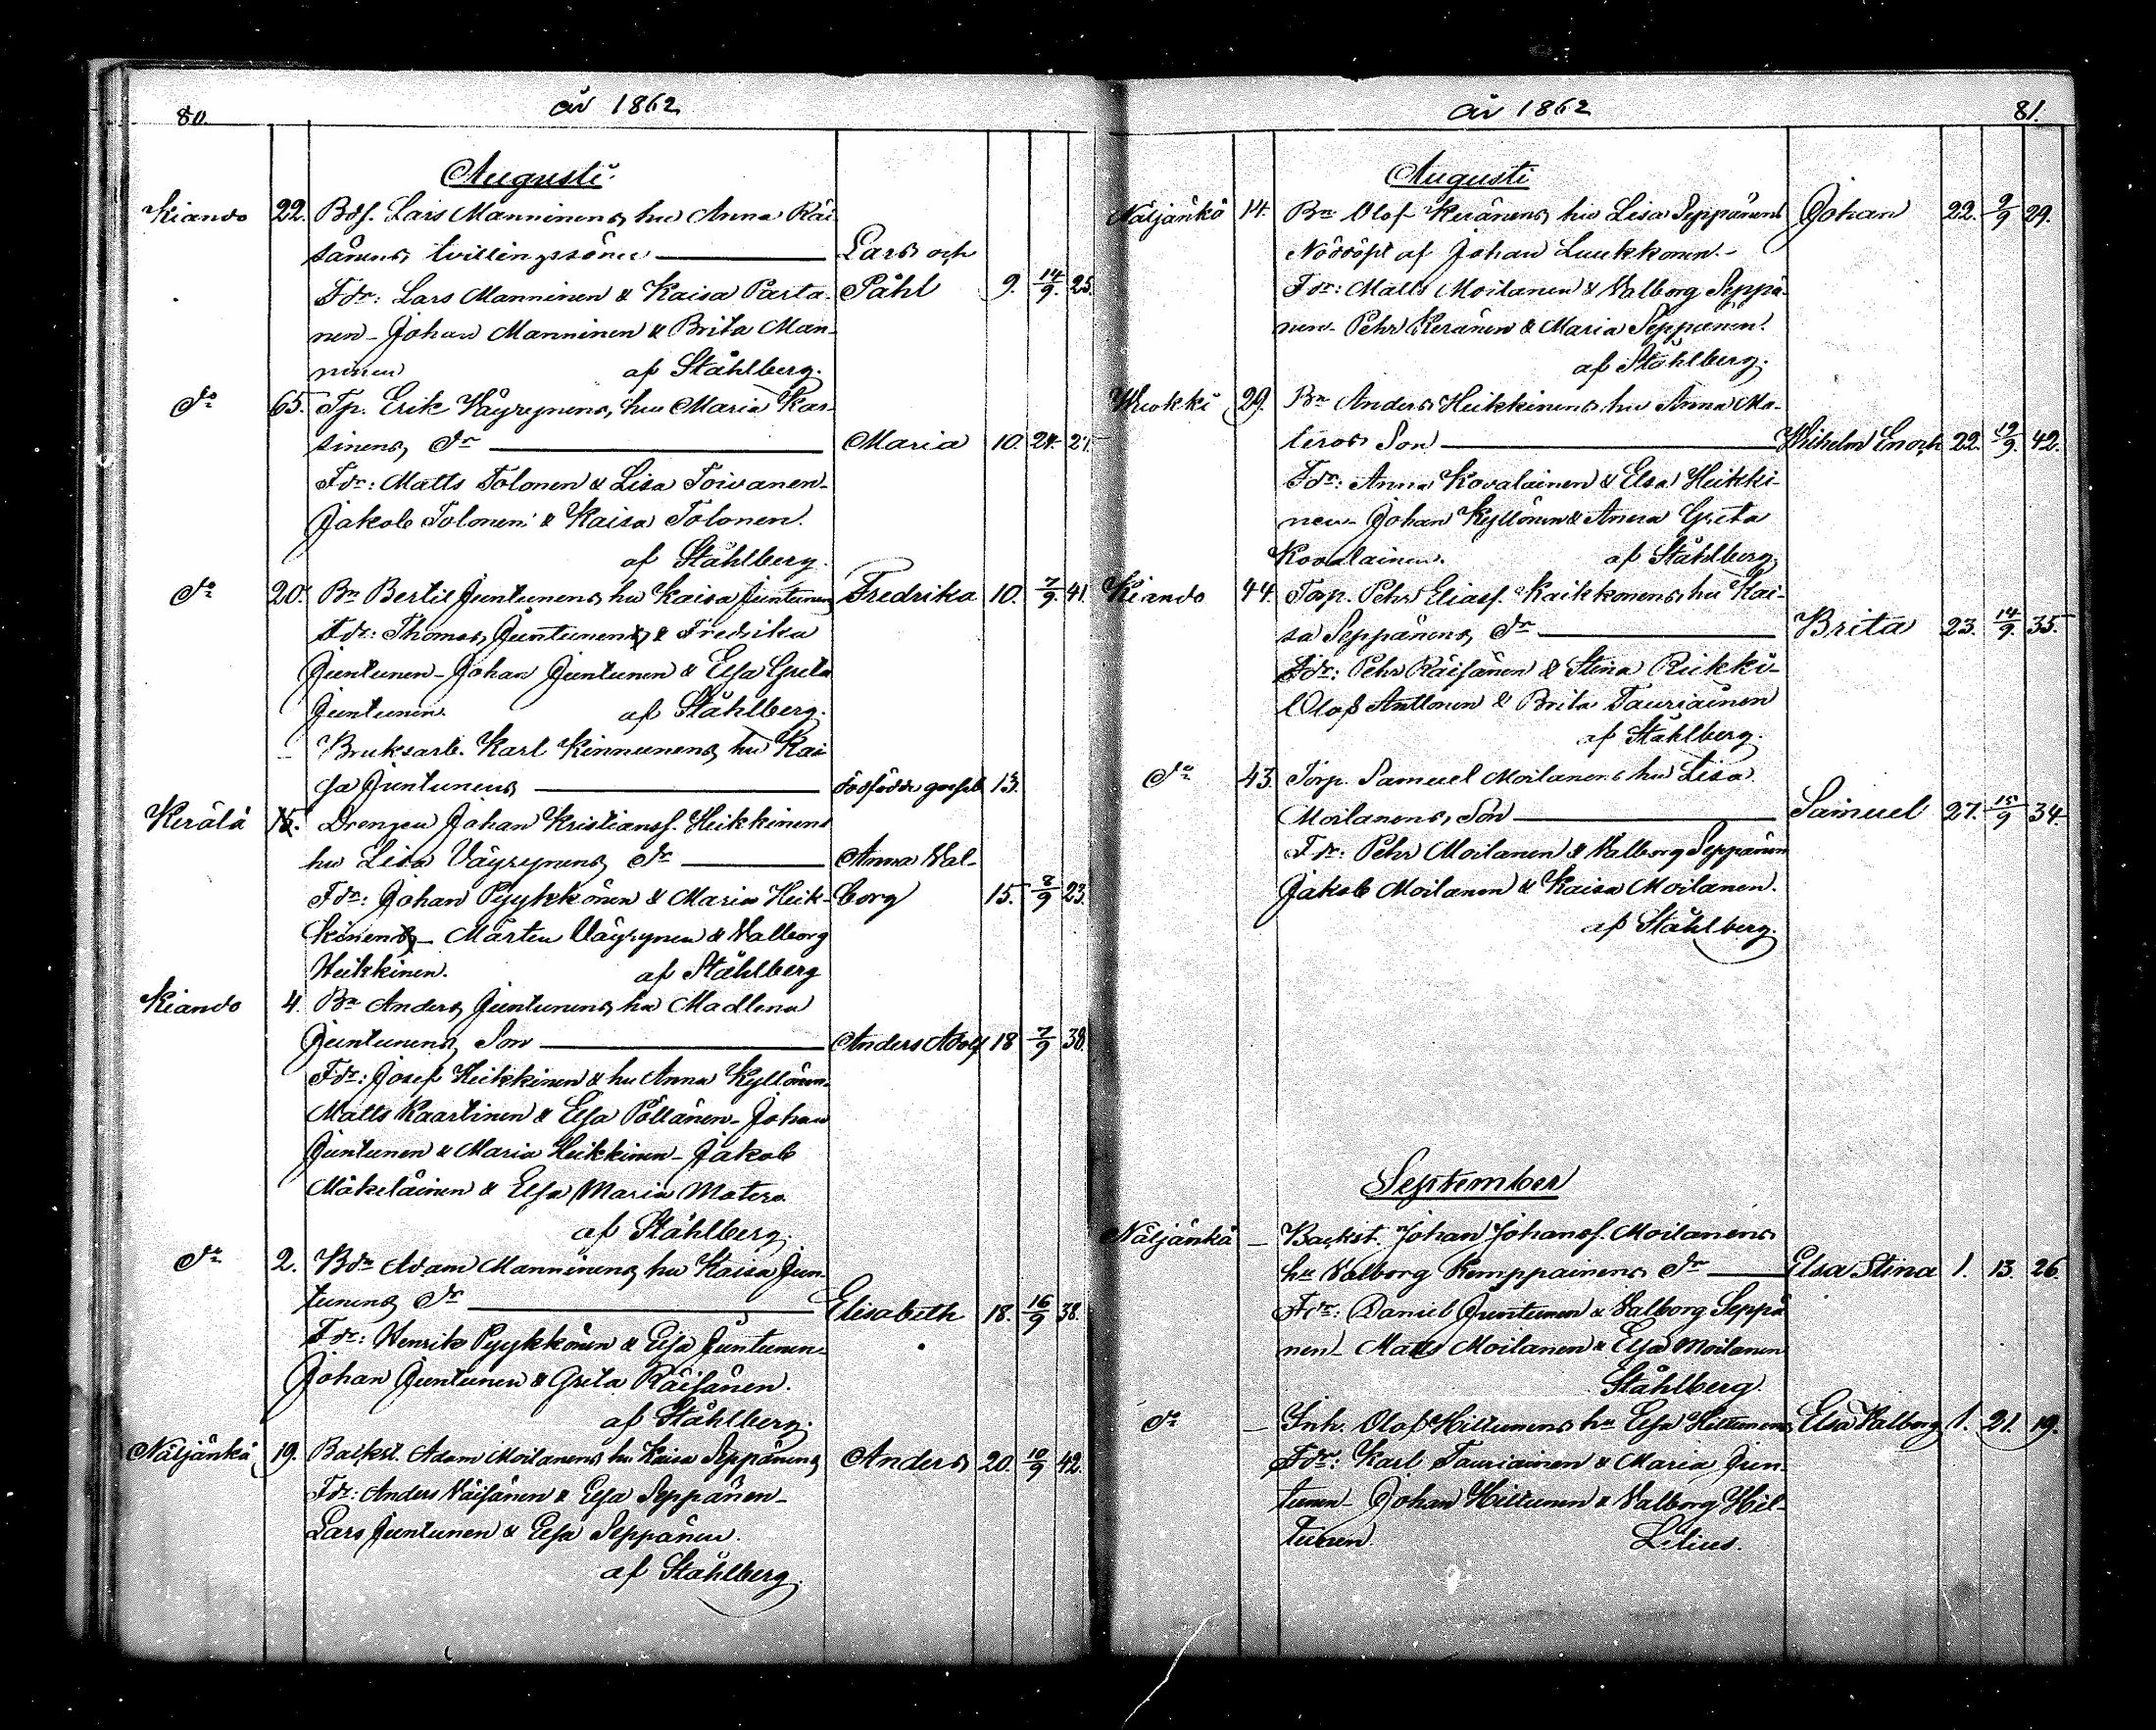 80.
år 1862
Augusti
Kiando 22. Bds. Lars Manninens hu Anna Räi
sänens tvillingssöner Lars och
Fdr: Lars Manninen & Kaisa Parta- Påhl 9. 14/9. 25.
nen - Johan Manninen & Brita Man-
ninen af Ståhlberg.
Do 65. Tp. Erik Väyrynens, hu Maria Kar-
sinens, dr Maria 10. 24. 27.
Fdr: Matts Tolonen & Lisa Toivanen-
Jakob Tolonen & Kaisa Tolonen.
af Ståhlberg.
Do 20. Bn Bertil Juntunens hu Kaisa Juntunens Fredrika 10. 7/9. 41.
Fdr: Thomas Juntunen & Fredrika
Juntunen - Johan Juntunen & Elsa Greta
Juntunen. af Ståhlberg.
- Bruksarb. Karl Kinnunens, hu Kai
sa Juntunens dödfödde gosseb 13.
Kerälä 15. Drengen Johan Kristianss. Heikkinens
hu Lisa Väyrynens dr Anna Val-
Fdr: Johan Pyykkönen & Maria Heik- borg 15. 8/9 23.
kinen - Mårten Väyrynen & Valborg
Heikkinen. af Ståhlberg
Kiando 4. Bn Anders Juntunens, hu Madlena
Juntunens, Son Anders Adolf 18 7/9 38.
Fdr: Josef Heikkinen & hu Anna Kyllönen-
Matts Kaartinen & Elsa Pöllänen - Johan
Juntunen & Maria Heikkinen - Jakob
Mäkeläinen & Elsa Maria Matero.
af Ståhlberg.
Do 2. Bdn Adam Manninens, hu Kaisa Jun-
tunens dr Elisabeth 18. 16/9 38.
Fdr: Henrik Pyykkönen & Elsa Juntunen-
Johan Juntunen & Greta Räisänen.
af Ståhlberg.
Näljänkä 19. Backst. Adam Moilanens hu Kaisa Seppänens Anders 20. 10/9 42.
Fdr: Anders Väisänen & Elsa Seppänen-
Lars Juntunen & Elsa Seppänen.
af Ståhlberg.
år 1862
81.
Augusti
Näljänkä 14. Bn Olof Keränens hu Lisa Seppänens Johan 22. 9/9 29.
Nöddöpt af Johan Luukkonen.-
Fdr: Matts Moilanen & Valborg Seppä-
nen - Pehr Keränen & Maria Seppänen.
af Ståhlberg.
Wuokki 29. Bn Anders Heikkinens hu Anna Ma-
teros Son Wilhelm Enoch 22. 12/9. 42.
Fdr: Anna Kovalainen & Elsa Heikki-
nen - Johan Kyllönen & Anna Greta
Kovalainen. af Ståhlberg
Kiando 44. Torp. Pehr Eliass. Kaikkonens, hu Kai-
sa Seppänens, dr Brita 23. 14/9. 35.
Fdr: Pehr Räisänen & Stina Riikki-
Olof Anttonen & Brita Tauriainen
af Ståhlberg.
Do 43 Torp. Samuel Moilanens hu Lisa
Moilanens, Son Samuel 27. 15/9 34.
Fdr: Pehr Moilanen & Valborg Seppänen
Jakob Moilanen & Kaisa Moilanen.
af Ståhlberg.
September
Näljänkä - Backst. Johan Johanss. Moilanens
hu Valborg Kemppainens dr Elsa Stina 1. 13. 26.
Fdr: Daniel Juntunen & Valborg Seppä
nen - Matts Moilanen & Elsa Moilanen
Ståhlberg.
Do - Inh. Olof Hiltunens hu Elsa Hiltunens Elsa Valborg 1. 21. 19.
Fdr: Karl Tauriainen & Maria Jun-
tunen - Johan Hiltunen & Valborg Hil-
tunen. Lilius.